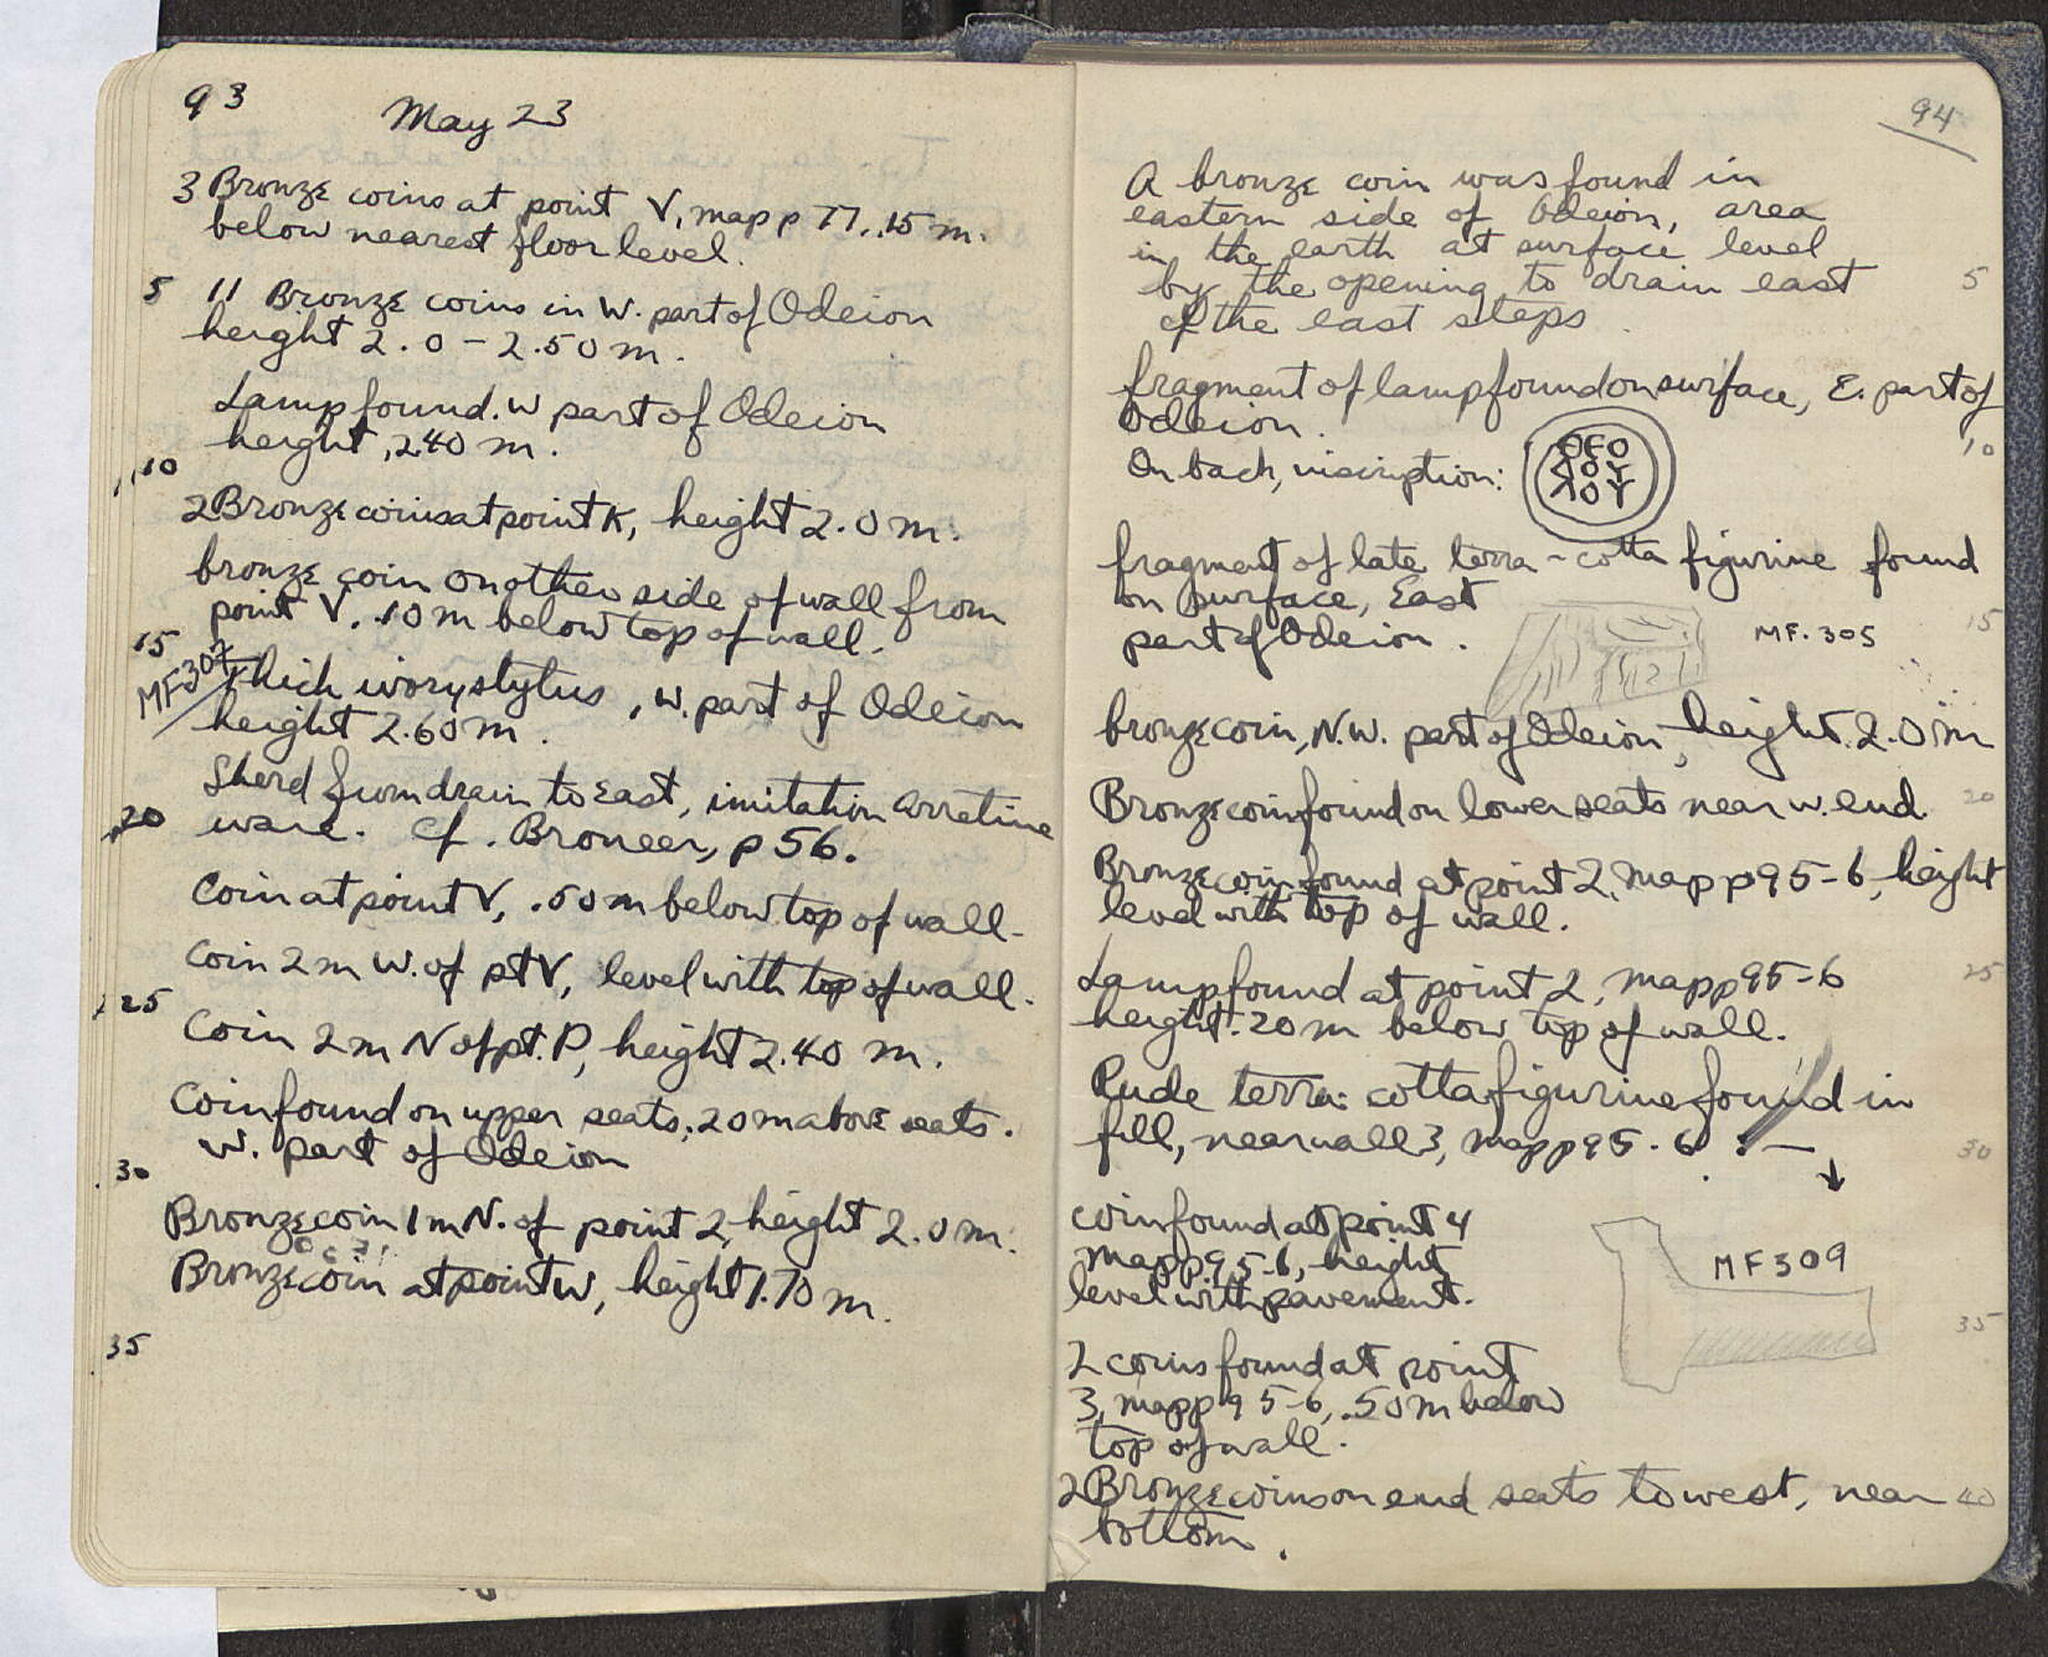 93
May 23
3 Bronze coins at point V, map p 77, .15 m.
below nearest floor level.
5
11 Bronze coins in W. part of Odeion
height 2.0 - 2.50 m.
Lamp found. W part of Odeion
height, 2.40 m.
10
2 Bronze coins at point K, height 2.0 m.
bronze coin on other side of wall from
point V. .10 m below top of wall.
15
MF307
Thick ivory stylus, W. part of Odeion
height 2.60 m.
Sherd from drain to East, imitation Arretine
20
ware. cf. Broneer, p 56.
Coin at point V, .50 m below top of wall.
Coin 2 m W. of pt V, level with top of wall.
25
Coin 2 m N of pt. P, height 2.40 m.
Coin found on upper seats; .20 m above seats.
W. part of Odeion
30
Bronze coin 1 m N. of point 2, height 2.0 m.
Bronze coin at point W, height 1.70 m.
35
94
A bronze coin was found in
eastern side of Odeion, area
in the earth at surface level
by the opening to drain east
5
of the east steps.
fragment of lamp found on surface, E. part of
Odeion.
10
On back, inscription:
ΟΕΟ
ΔΟΥ
ΛΟΥ
fragment of late terra-cotta figurine found
on surface, East
15
part of Odeion.
MF. 305
bronze coin, N.W. part of Odeion, height. 2.0 m
Bronze coin found on lower seats near w. end.
20
Bronze coin found at point 2, map p 95-6, height
level with top of wall.
Lamp found at point 2, map p 95-6
25
height .20 m below top of wall.
Rude terra cotta figurine found in
fill, near wall 3, map p 95-6 :—
30
coin found at point 4
map p. 95-6, height
level with pavement.
MF309
35
2 coins found at point
3, map p 95-6, .50 m below
top of wall.
2 Bronze coins on end seats to west, near
40
bottom.